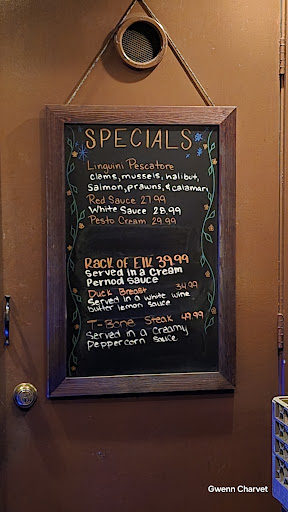 SPECIALS
Linguini Pescatore
clams, mussels, halibut,
Salmon, prawns, & calamari
Red Sauce 27.99
White Sauce 28.99
Pesto Cream 29.99
Rack of Elk 39.99
Served in a Cream
Pernod Sauce
Duck Breast 34.99
Served in a white wine
butter lemon sauce
T-Bone Steak 49.99
Served in a Creamy
Peppercorn Sauce
Gwenn Charvet